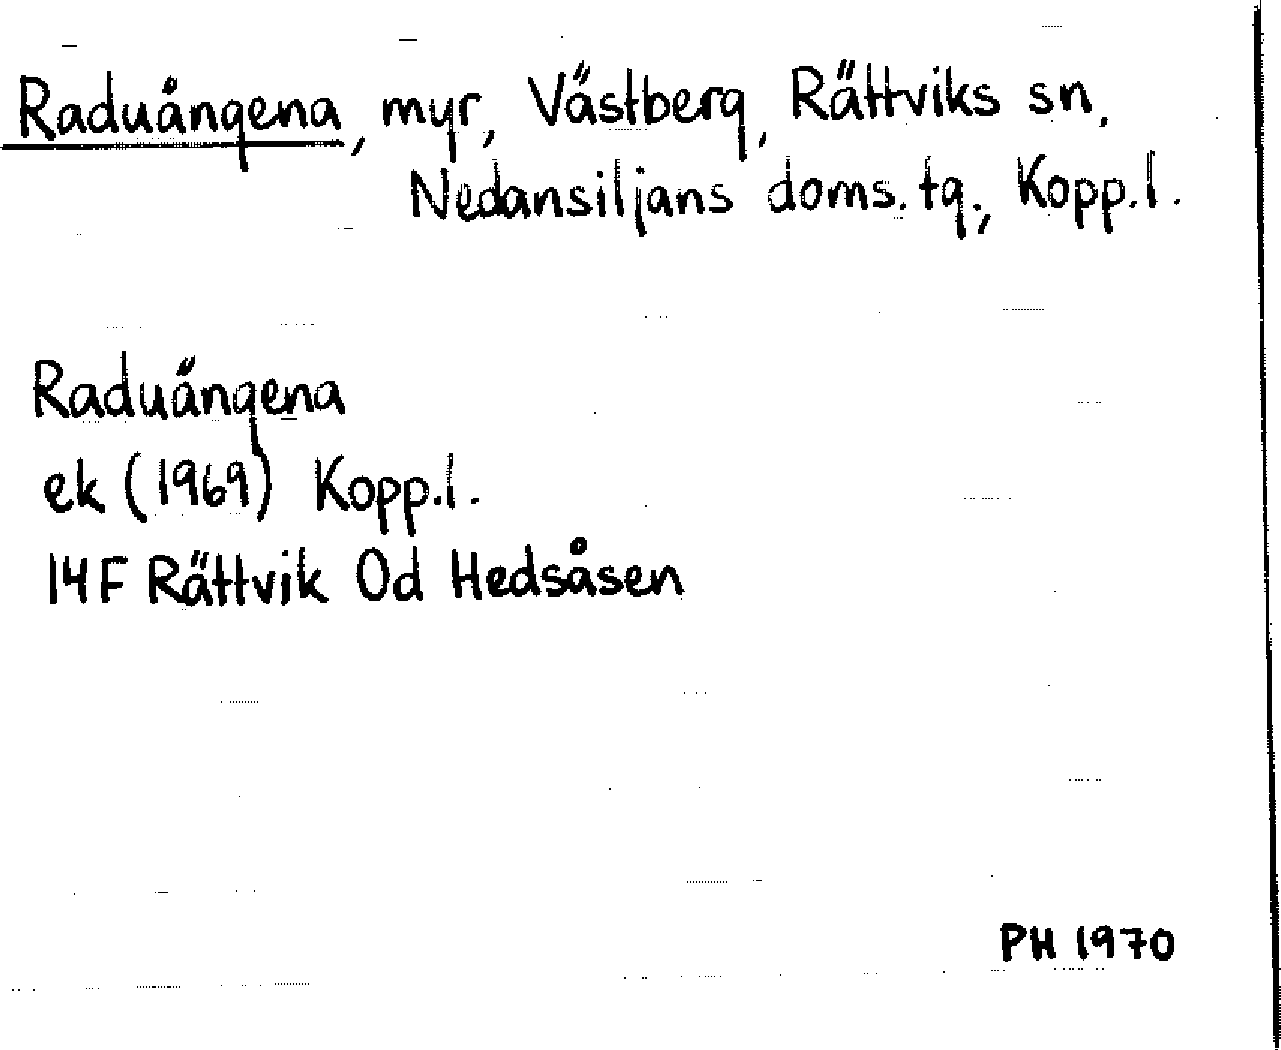 Raduängena, myr, Västberg, Rättviks sn,
Nedansiljans doms.tg., Kopp.l.
Raduängena
ek (1969) Kopp.l.
14F Rättvik 0d Hedsåsen
PH 1970